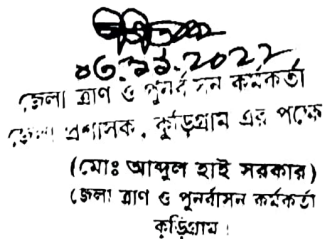 ০৬.১১.2022
জেলা ত্রাণ ও পুনর্বাসন কর্মকর্তা
জেলা প্রশাসক, কুড়িগ্রাম এর পক্ষে
(মোঃ আব্দুল হাই সরকার)
জেলা ত্রাণ ও পুনর্বাসন কর্মকর্তা
কুড়িগ্রাম।